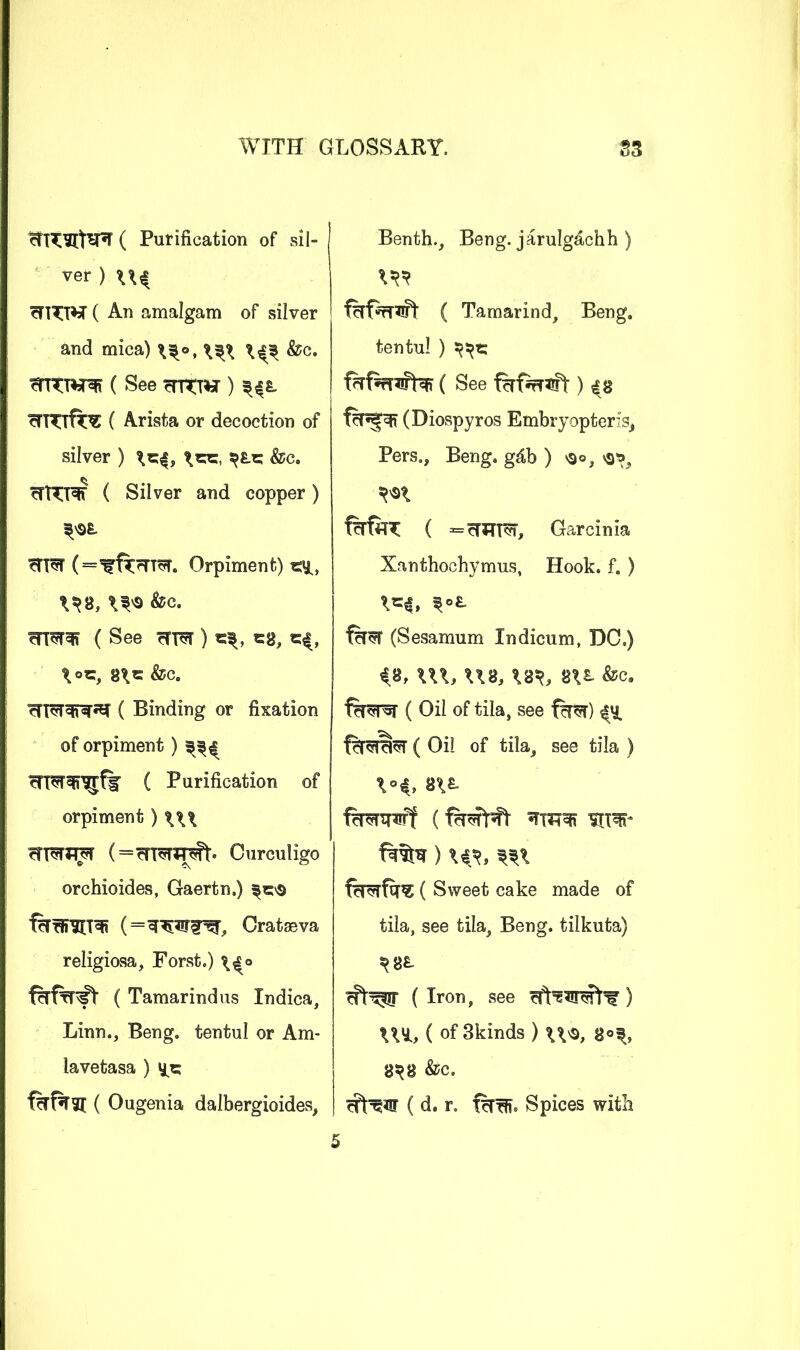 WITH GLOSSARY. 33
तारशोधन ( Purification of sil-
ver ) ११६
ताराभ्र ( An amalgam of silver
and mica) १३०, १३१ १६३ &c.
ताराभ्रक ( See ताराभ्र ) ३६९
तारारिष्ट ( Arista or decoction of
silver ) १८६, १८८, २९८ &c.
तारार्क ( Silver and copper )
३७९
ताल (=हरिताल. Orpiment) ८५,
१२४, १३७ &c.
तालक ( See ताल ) ८३, ८४, ८६,
१०८, ४१८ &c.
तालकबन्ध ( Binding or fixation
of orpiment ) ३३६
तालकशुद्धि ( Purification of
orpiment ) १११
तालमूल (=तालमूली. Curculigo
orchioides, Gaertn.) ३८७
तिक्तशाक (=वरुणवृक्ष, Cratæva
religiosa, Forst.) १६०
तिन्तिड़ी ( Tamarindus Indica,
Linn., Beng. tentul or Am-
lavetasa ) ५८
तिनिश ( Ougenia dalbergioides,
Benth., Beng. járulgáchh )
१२२
तिन्तिली ( Tamarind, Beng.
tentul ) २२८
तिन्तिलीक ( See तिन्तिली ) ६४
तिन्दुक (Diospyros Embryopteris,
Pers., Beng. gáb ) ७०, ७२,
२७१
तिमिर ( =तमाल, Garcinia
Xanthochymus, Hook. f. )
१८६, ३०९
तिल (Sesamum Indicum, DC.)
६४, १११, ११४, १४२, ४१९ &c.
तिलतैल ( Oil of tila, see तिल) ६५
तिलतैल ( Oil of tila, see tila )
१०६, ४१९
तिलपर्णी ( तिलोनी नामक शाक-
विशेष ) १६२, ३३१
तिलपिष्ट ( Sweet cake made of
tila, see tila, Beng. tilkuta)
२४९
तीक्ष्ण ( Iron, see तीक्ष्णलौह )
११५, ( of 3kinds ) ११७, ४०३,
४२४ &c.
तीक्ष्ण ( d. r. तिक्त. Spices with
5